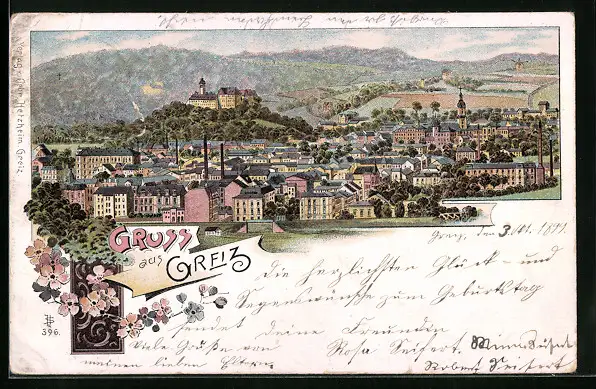 Verlag v. Otto Hetzheim, Greiz.
GRUSS
aus
GREIZ
396.
Greiz, den 3.
Die herzlichsten Glück- und
Segenswünsche zum Geburtstag
sendet deine Freundin
Rosa Seifert.
Viele Grüße von
meinen lieben Eltern.
Robert Seifert